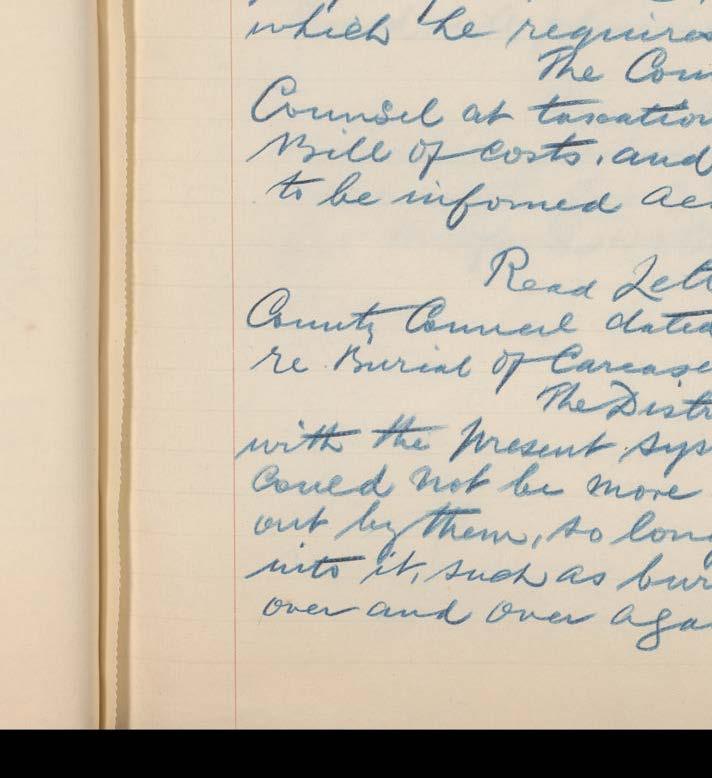 which he require
The Coun
Counsel at taxation
Bill of costs, and
to be infomed Acc
Read Lett
County Council dated
re Burial of Carcase
The Distr
with the present sys
could not be more
out by them, so long
into it, such as bur
over and over aga